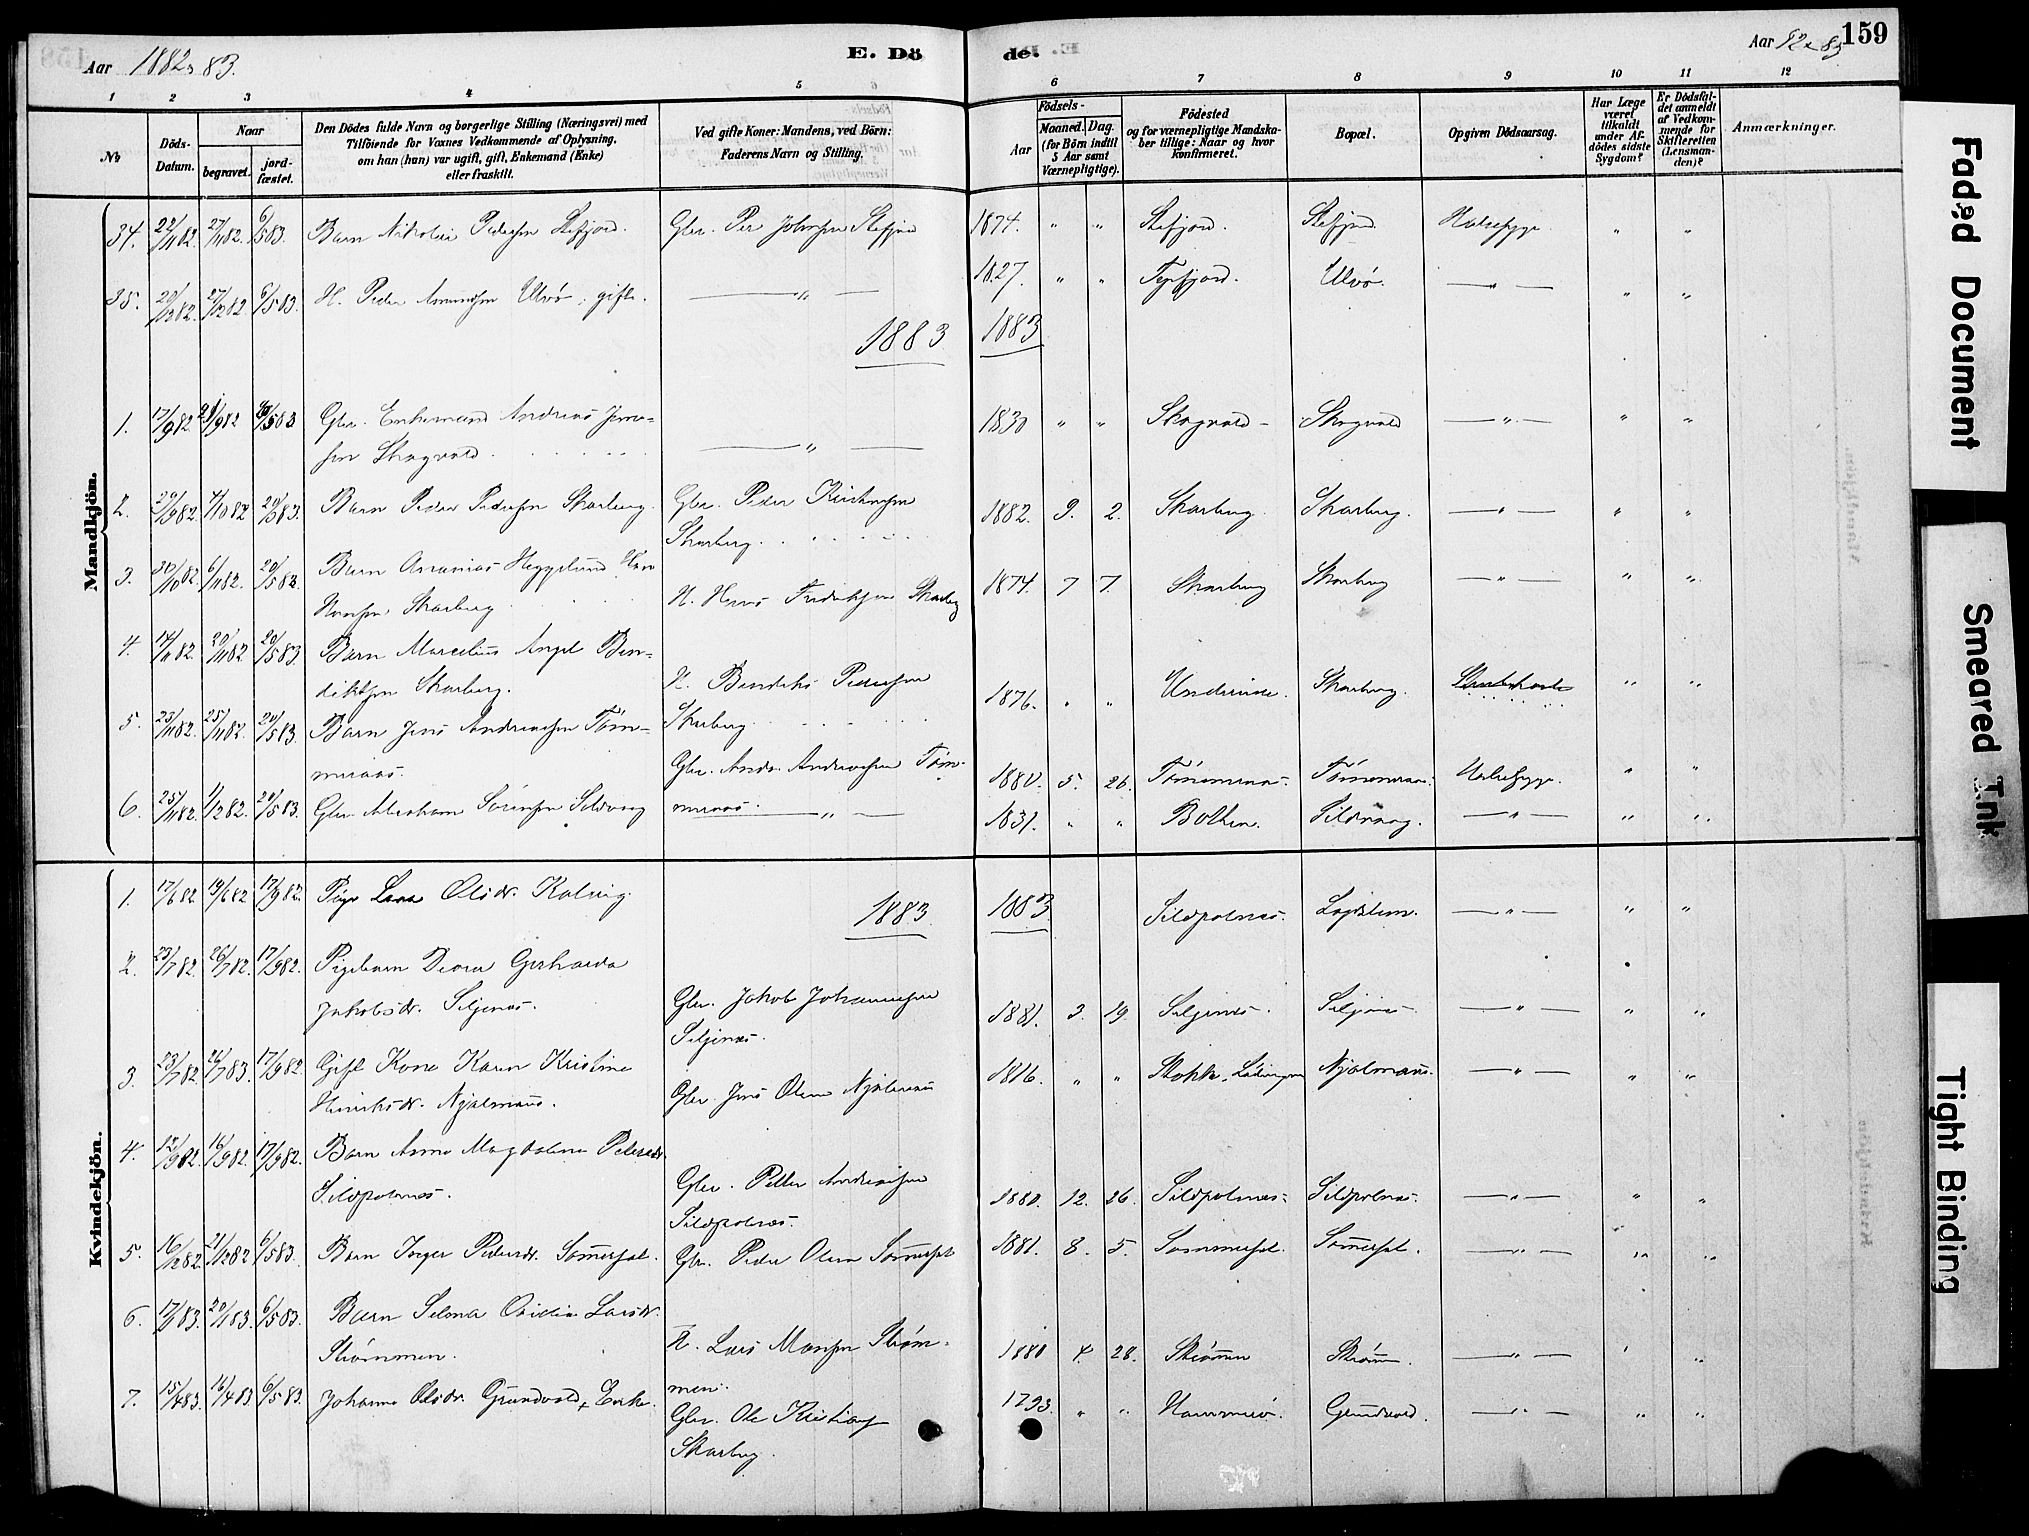 Aar 1882 & 83.
E. Dö
de.
Aar 82 & 83
159
1 2 3 4 5 6 7 8 9 10 11 12
No
Döds-
Datum.
Naar
begravet.
jord-
fæstet.
Den Dödes fulde Navn og borgerlige Stilling (Næringsvei) med
Tilföiende for Voxnes Vedkommende af Oplysning,
om han (hun) var ugift, gift, Enkemand (Enke)
eller fraskilt.
Ved gifte Koner: Mandens, ved Börn:
Faderens Navn og Stilling.
Födsels-
Aar
Maaned. Dag.
(for Börn indtil
5 Aar samt
Værnepligtige).
Födested
og for værnepligtige Mandska-
ber tillige: Naar og hvor
konfirmeret.
Bopæl.
Opgiven Dödsaarsag.
Har Læge
været
tilkaldt
under Af-
dödes sidste
Sygdom?
Er Dödsfal-
det anmeldt
af Vedkom-
mende for
Skifteretten
(Lensman-
den)?
Anmærkninger.
Mandkjön.
34. 22/11 82. 27/11 82. 6/5 83. Barn Nikolai Pedersen Stefjord. Gbr. Per Johnsen Stefjord 1874. " " Stefjord. Stefjord. Halsesyge. " "
35. 20/12 82. 27/12 82 6/5 83. H. Peder Amundsen Ulvø, gift. — " — 1827. " " Tysfjord. Ulvø. — " — " "
1883 1883
1. 17/9 82. 21/9 82 20/5 83 Gbr. Enkemand Andreas Jens- 1830 " " Skogvold - Skogvold — " — " "
sen Skogvold. — " —
2. 29/9 82. 4/10 82 20/5 83. Barn Peder Pedersen Skarberg. Gbr. Peder Kristensen 1882. 9. 2. Skarberg. Skarberg. — " — " "
Skarberg.
3. 30/10 82. 6/11 82. 20/5 83. Barn Ananias Heggelund
Hansen Skarberg H. Hans Fredriksen Skarberg 1874. 7 7. Skarberg Skarberg — " — " "
4. 14/11 82. 20/11 82. 20/5 83. Barn Marcelius Angel Ben-
diktsen Skarberg. H. Bendiks Pedersen 1876. " " Skarberg. " "
Skarberg
5. 23/11 82. 25/11 82. 20/5 83. Barn Jens Andreassen Töm-
meraas. Gbr. Andr. Andreassen Töm- 1880. 5. 26. Tömmeraas. Tömmeraas. Halsesyge. " "
meraas.
6. 25/11 82. 1/12 82. 20/5 83. Gbr. Abraham Sörensen Sildvaag — " — 1831. " " Botten. Sildvaag. — " — " "
Kvindekjön.
1883 1883
1. 17/6 82. 19/6 82 17/9 82. Pige Lava Olsdr. Kalvig Sildpolnes. — " — " "
2. 23/7 82. 26/7 82. 17/9 82. Pigebarn Gerharda
Jakobsdr. Siljenes. Gbr. Jakob Johannesen 1881. 3. 19. Siljenes. Siljenes — " — " "
Siljenes.
3. 23/7 82. 26/7 83. 17/9 82. Gift Kone Karen Kristine
Henriksdr. Njalmaas. Gbr. Jens Olsen Njalmaas 1816. " " Stokke, Lödingen Njalmaas. — " — " "
4. 12/9 82. 16/9 82. 17/9 82. Barn Anne Magdalena Pedersdr.
Sildpolnes. Gbr. Peder Andreassen 1880. 12. 26. Sildpolnes. Sildpolnes. — " — " "
Sildpolnes.
5. 16/12 82. 21/12 82 6/5 83. Barn Inger Pedersdr. Sommerset. Gbr. Peder Olsen Sommerset 1881. 8. 5. Sommerset. Sommerset. — " — " "
6. 17/1 83. 20/1 83. 6/5 83. Barn Selma Ovidia Larsdr.
Strömmen. H. Lars Monsen Ström- 1880 4. 28. Strömmen Strömm. — " — " "
men.
7. 15/4 83. 16/4 83. 6/5 83. Johanna Olsdr. Grundvold, Enke. Gbr. Ole Kristians 1793. " " Hammerö. Grundvold. — " — " "
Skarberg.
Faded Document
Smeared Ink
Tight Binding